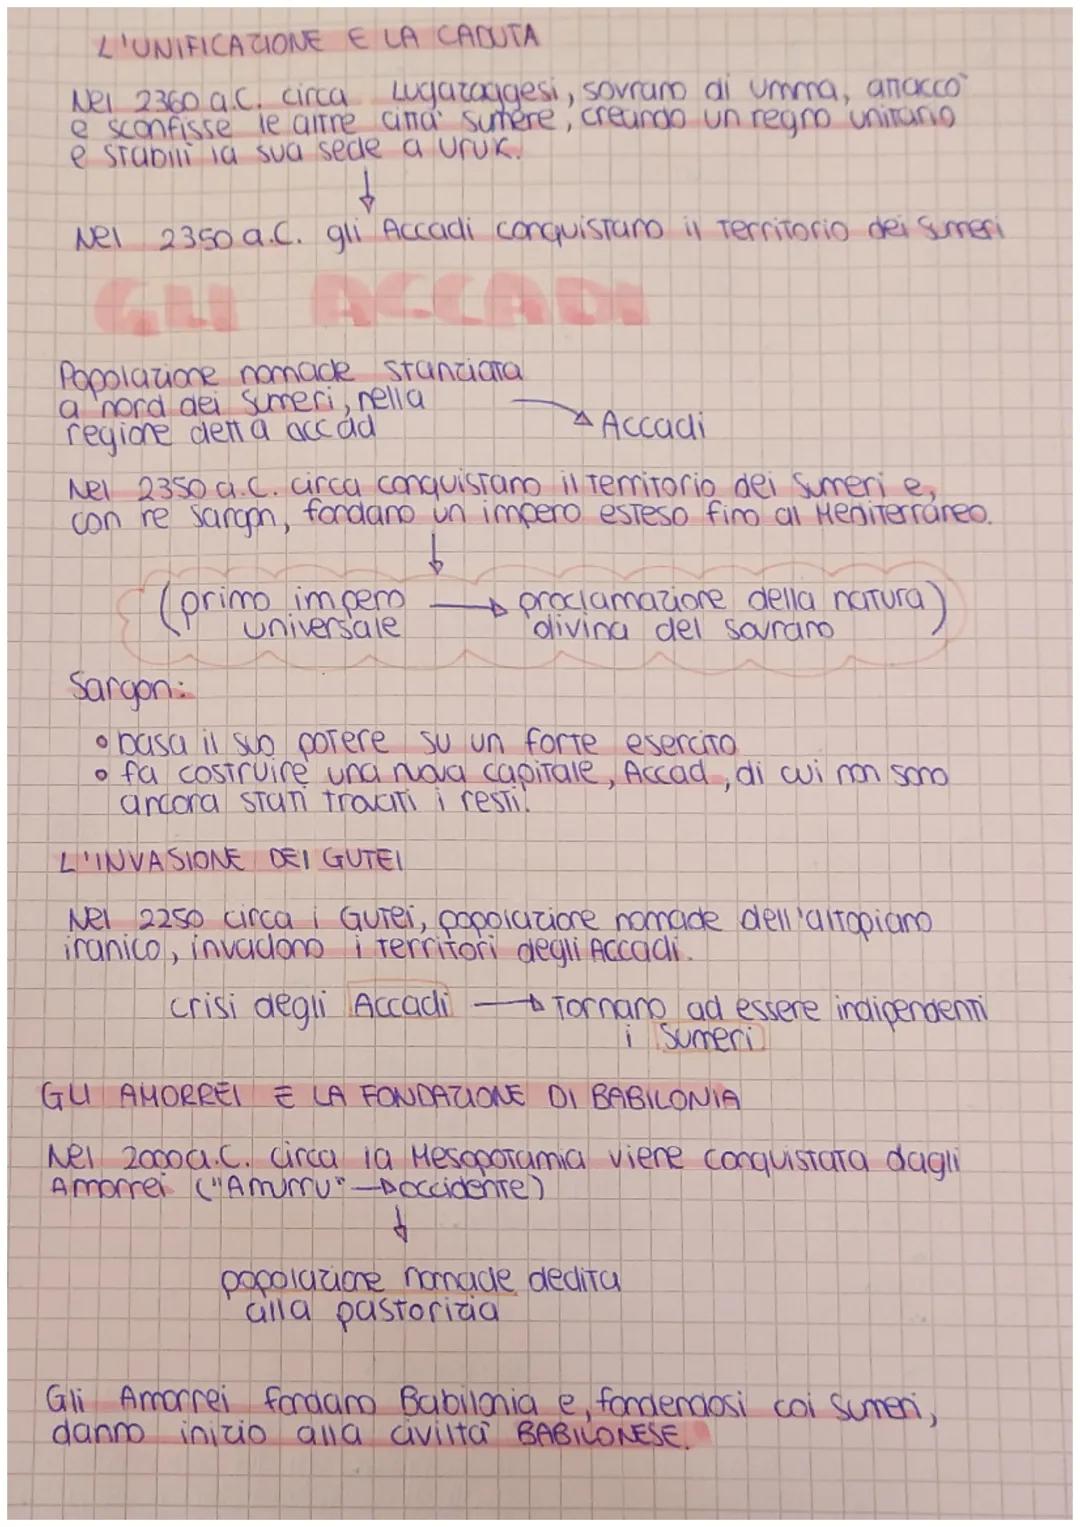 L'UNIFICAZIONE E LA CADUTA
Nel 2360 a.C. circa Lugazaggesi, sovrano di Umma, attaccò
e sconfisse le altre città sumere, creando un regno unitario
e stabilì la sua sede a Uruk.
↓
Nel 2350 a.C. gli Accadi conquistano il territorio dei Sumeri
GLI ACCADI
Popolazione nomade stanziata
a nord dei Sumeri, nella
regione detta accad
→ Accadi
Nel 2350 a.C. circa conquistano il territorio dei Sumeri e,
con re Sargon, fondano un impero esteso fino al Mediterraneo.
↓
(primo impero → proclamazione della natura)
universale divina del sovrano
Sargon:
• basa il suo potere su un forte esercito
• fa costruire una nuova capitale, Accad, di cui non sono
ancora stati trovati i resti.
L'INVASIONE DEI GUTEI
Nel 2250 circa i Gutei, popolazione nomade dell'altopiano
iranico, invadono i territori degli Accadi.
crisi degli Accadi → Tornano ad essere indipendenti
i Sumeri
GLI AMORREI E LA FONDAZIONE DI BABILONIA
Nel 2000 a.C. circa la Mesopotamia viene conquistata dagli
Amorrei ("Amurru" → occidente)
↓
popolazione nomade dedita
alla pastorizia
Gli Amorrei fondano Babilonia e, fondendosi coi Sumeri,
danno inizio alla civiltà BABILONESE.